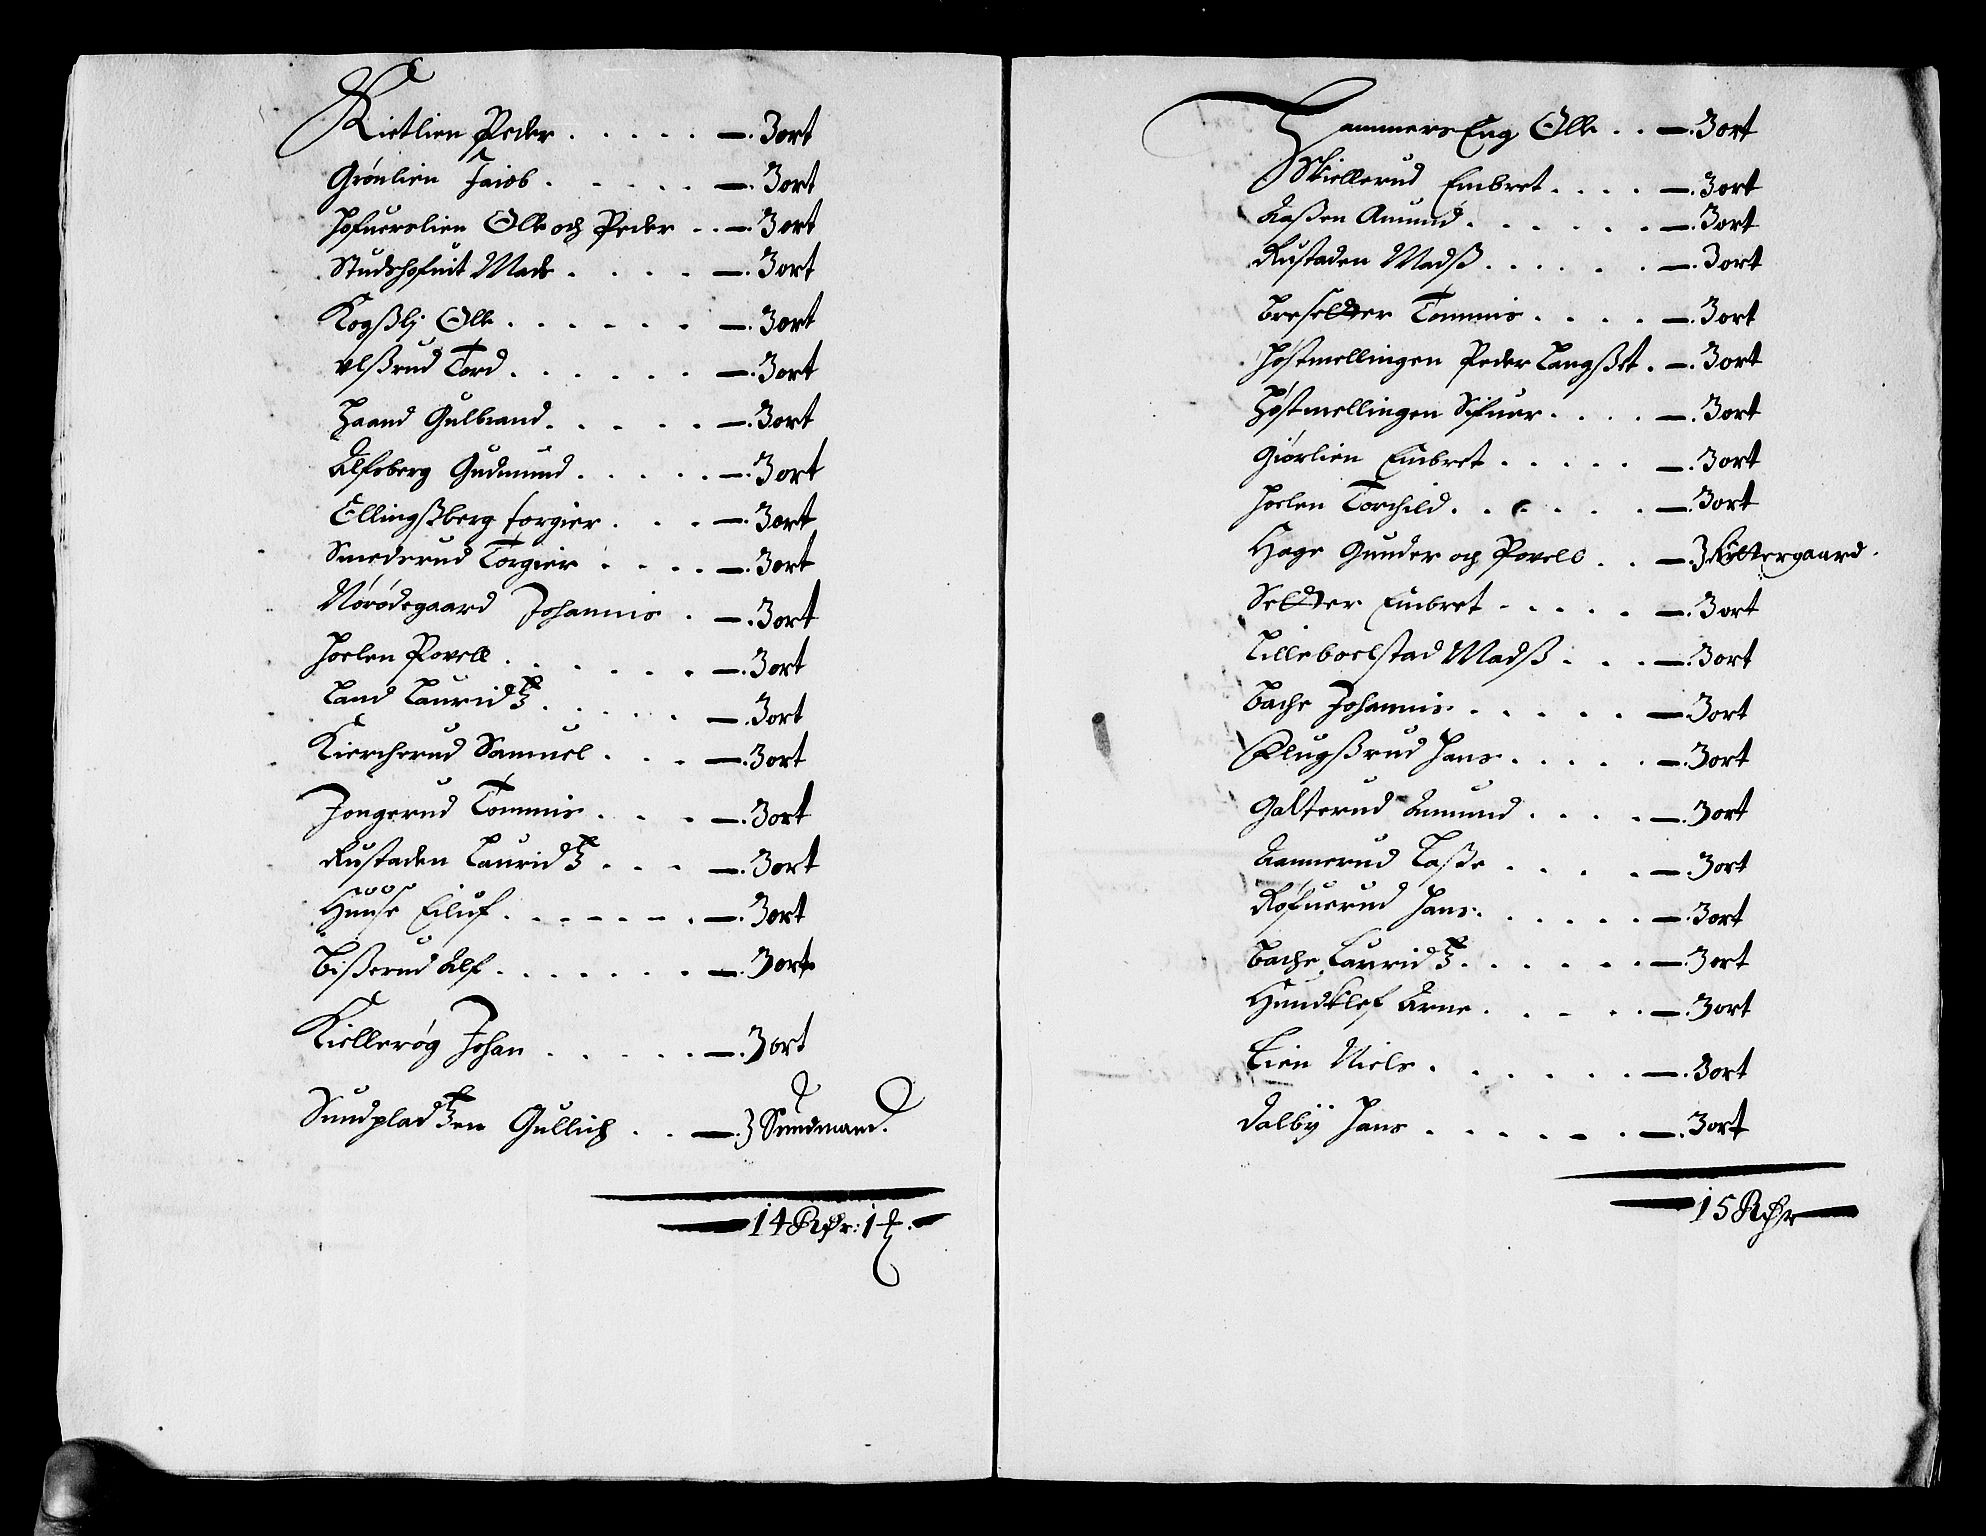 Kietlien Peder . . . . . — . 3 ort
Grönlien Jaiob . . . . . — . 3 ort
Hofuerslien Olle och Peder . . — . 3 ort
Studshofuit Mads . . . . — . 3 ort
Kogßlj Olle . . . . . . — . 3 ort
Vlßrud Tord . . . . . . — . 3 ort
Haand Gulbrand . . . . . — . 3 ort
Alfsberg Gudmund . . . . . — . 3 ort
Ellingßberg Torgier . . . — . 3 ort
Smederud Torgier . . . . — . 3 ort
Nörödegaard Johannis . — . 3 ort
Hoelen Povell . . . . . — . 3 ort
Land Lauridtz . . . . . — . 3 ort
Kiercherud Samuel . . . — . 3 ort
Jongerud Tommis . . . — . 3 ort
Rustaden Lauridtz . . . — . 3 ort
Huuse Eiluf . . . . . . — . 3 ort
Bißerud Alf . . . . . . — . 3 ort
Kiellerög Johan . . . . . — . 3 ort
Sundpladtzen Gullich . . — . 3 Sundmand.
14 Rdr: 1 ℔.
Hammers Eng Olle . . — . 3 ort
Skiellerud Embret . . . . — . 3 ort
Aaßen Amund . . . . . . — . 3 ort
Rustaden Madß . . . . . — . 3 ort
Breseltter Tommis . . . . — . 3 ort
Höstmellingen Peder Langßet . — . 3 ort
Höstmellingen Sifuer . . . . — . 3 ort
Giörlien Embret . . . . . — . 3 ort
Hoelen Torchild . . . . . . — . 3 ort
Hage Gunder och Povell . . — . 3 Rettergaard .
Seltter Embret . . . . . — . 3 ort
Lilleboelstad Madß . . . — . 3 ort
Bache Johannis . . . . . — . 3 ort
Flugßrud Hans . . . . . — . 3 ort
Galterud Amund . . . . — . 3 ort
Aamerud Laße . . . . — . 3 ort
Röfuerud Hans . . . . . — . 3 ort
Bache Lauridtz . . . . . . — . 3 ort
Hundklef Arne . . . . . — . 3 ort
Lien Niels . . . . . . — . 3 ort
Dalbÿ Hans . . . . . . — . 3 ort
15 Rdr